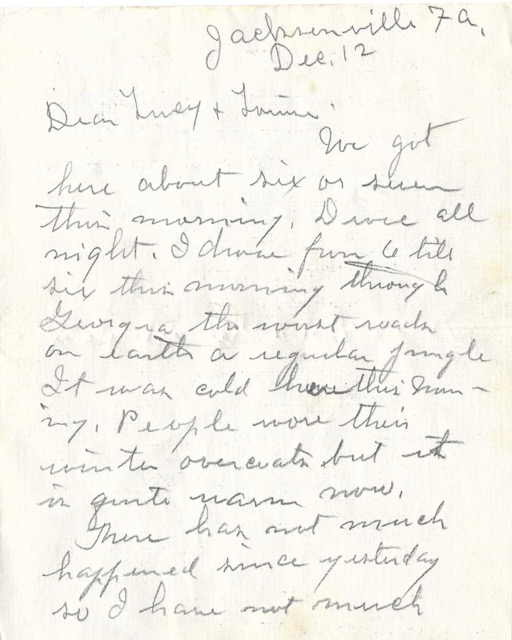 Jacksonville Fa.
Dec. 12
Dear Lucy + Louise.
We got
here about six or seven
this morning. Drove all
night. I drove from 6 till
six this morning through
Georgia the worst roads
on earth a regular jungle
It was cold here this morn-
ing. People wore their
winter overcoats but it
is quite warm now.
There has not much
happened since yesterday
so I have not much